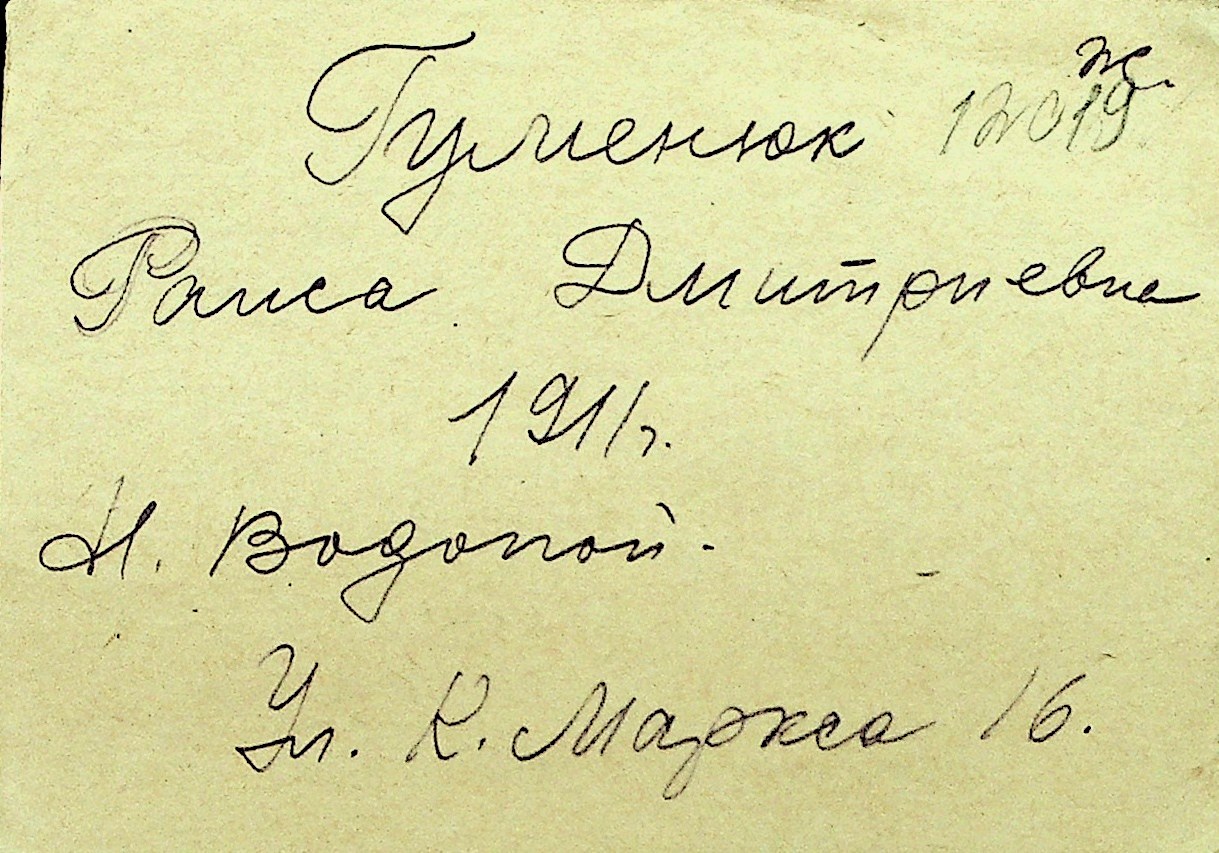 ж.
Гуменюк 12019
Раиса Дмитриевна
1911г.
Н. Водопой.
Ул. К. Маркса 16.